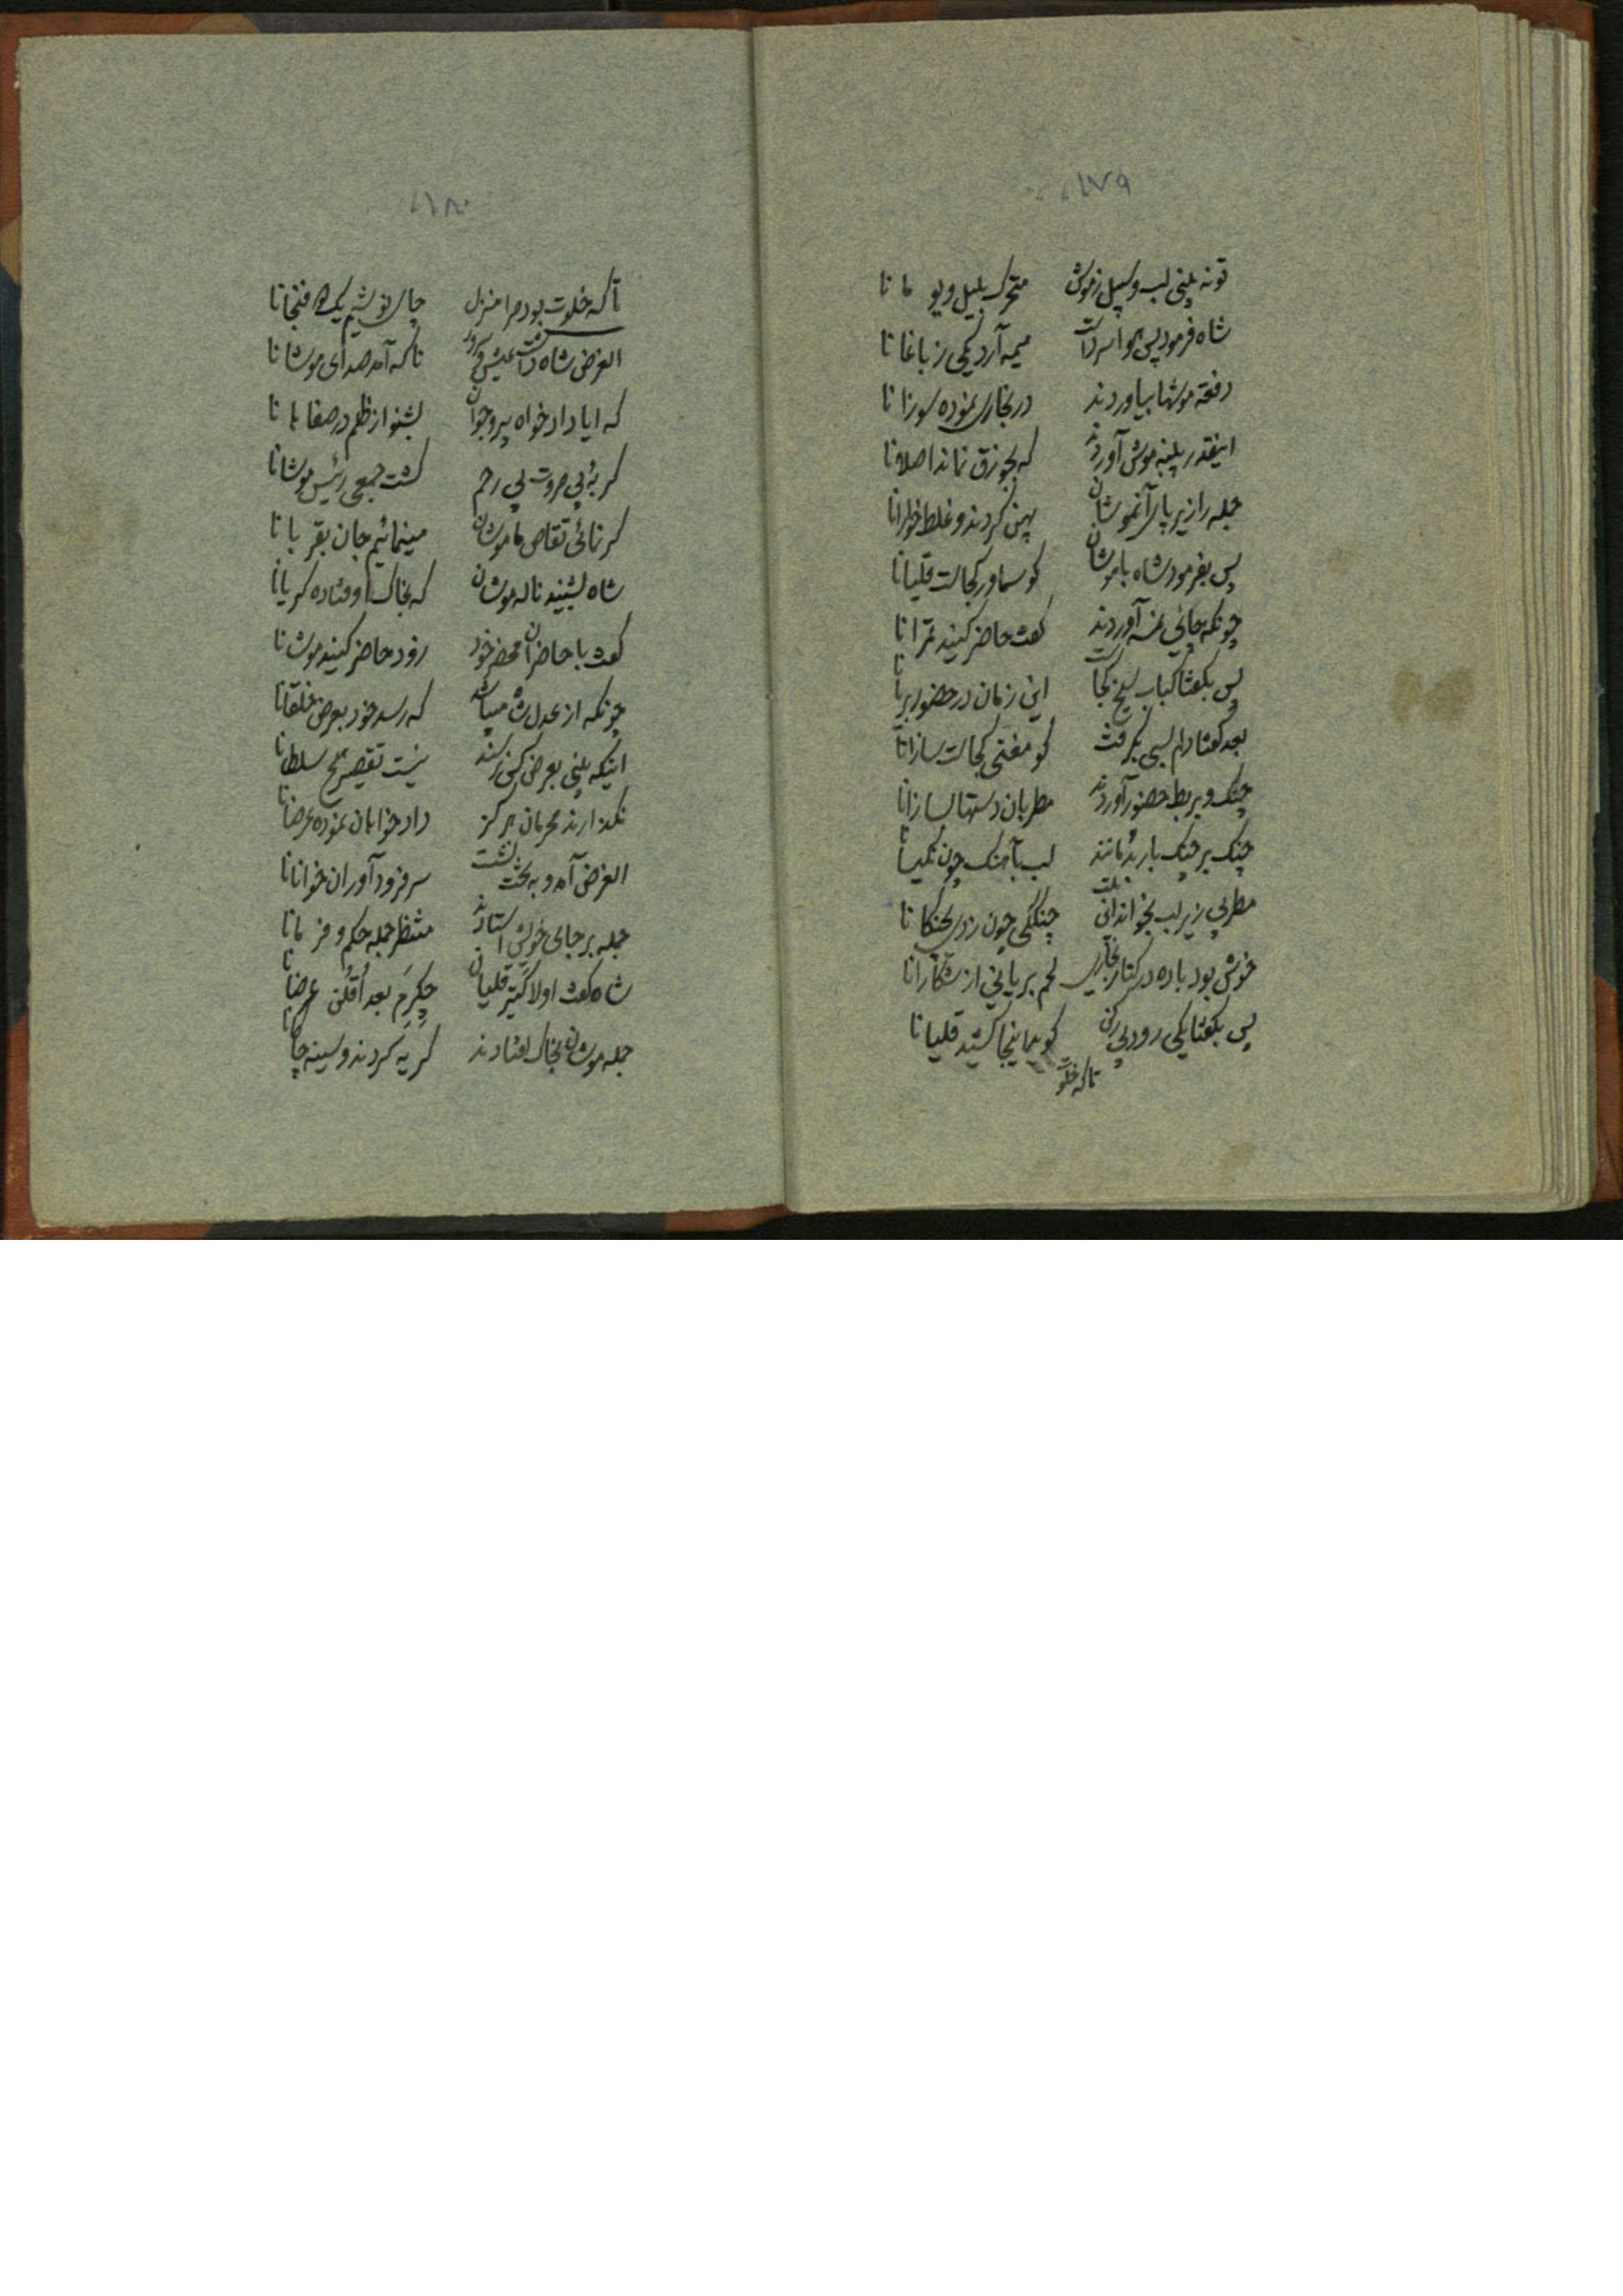 ۱۷۹
تو نه بینی لب و سبیل ز موش متحرک بلیل و یو مانا
شاه فرمود پس هوا سرد است هیمه آرد یکی ز باغانا
دفعة موشها بیاوردند در بخاری نموده سوزانا
اینقدر پنبه موش آوردند که بجوزق نماند اصلانا
جمله را زیر پای آنموشان پهن کردند و غلط خورانا
پس بفرمود شاه با موشان کو سماور کجاست قلیانا
چونکه چائی همه آوردند گفت حاضر کنید
پس بگفتا کباب سیخ کجاست این زمان در حضور
بعد گفتا دلم بسی بگرفت کو مغنی کجاست سازانا
چنگ و بربط حضور آوردند مطربان دستها بسازانا
چنگ بر چنگ باربد مانند لب بآهنگ چون نکیسانا
مطربی زیر لب بخواند چنگکی چون زدی بچنگانا
خوش بود باده در کنار بخاری لحم بریانی از شکارانا
پس بگفتا یکی رود پی رکن کو بیا اینجا کشید قلیانا
تا که خلوت
۱۸۰
تا که خلوت بود مرا منزل چای نوشیم یک دو فنجانا
الغرض شاه داشت عیش تا که آمد صدای موشانا
که ایا دادخواه پیر و جوان بشنو از ظلم در صفاهانا
گربهٔ بی مروت بی رحم کشت جمعی رئیس موشانا
گر نمائی تقاص ما موشان مینمائیم جان بقربانا
شاه بشنید ناله موشان که بخاک اوفتاده گریانا
گفت با حاضران محضر خود زود حاضر کنید موشانا
چونکه از عدل شاه میباشد که رسد خود بعرض خلقانا
اینکه بینی بعرض کس نرسند نیست تقصیر هیچ سلطانا
نگذارند محرمان هرگز دادخواهان نموده عرضانا
الغرض آمد و به تخت نشست سر فرود آوران خوانانا
جمله بر جای خویش استادند منتظر جمله حکم و فرمانا
شاه گفت اولا گتیر قلیان چکرم بعد اقلن عرضانا
جمله موشان بخاک افتادند گریه کردند و سینه چاکانا